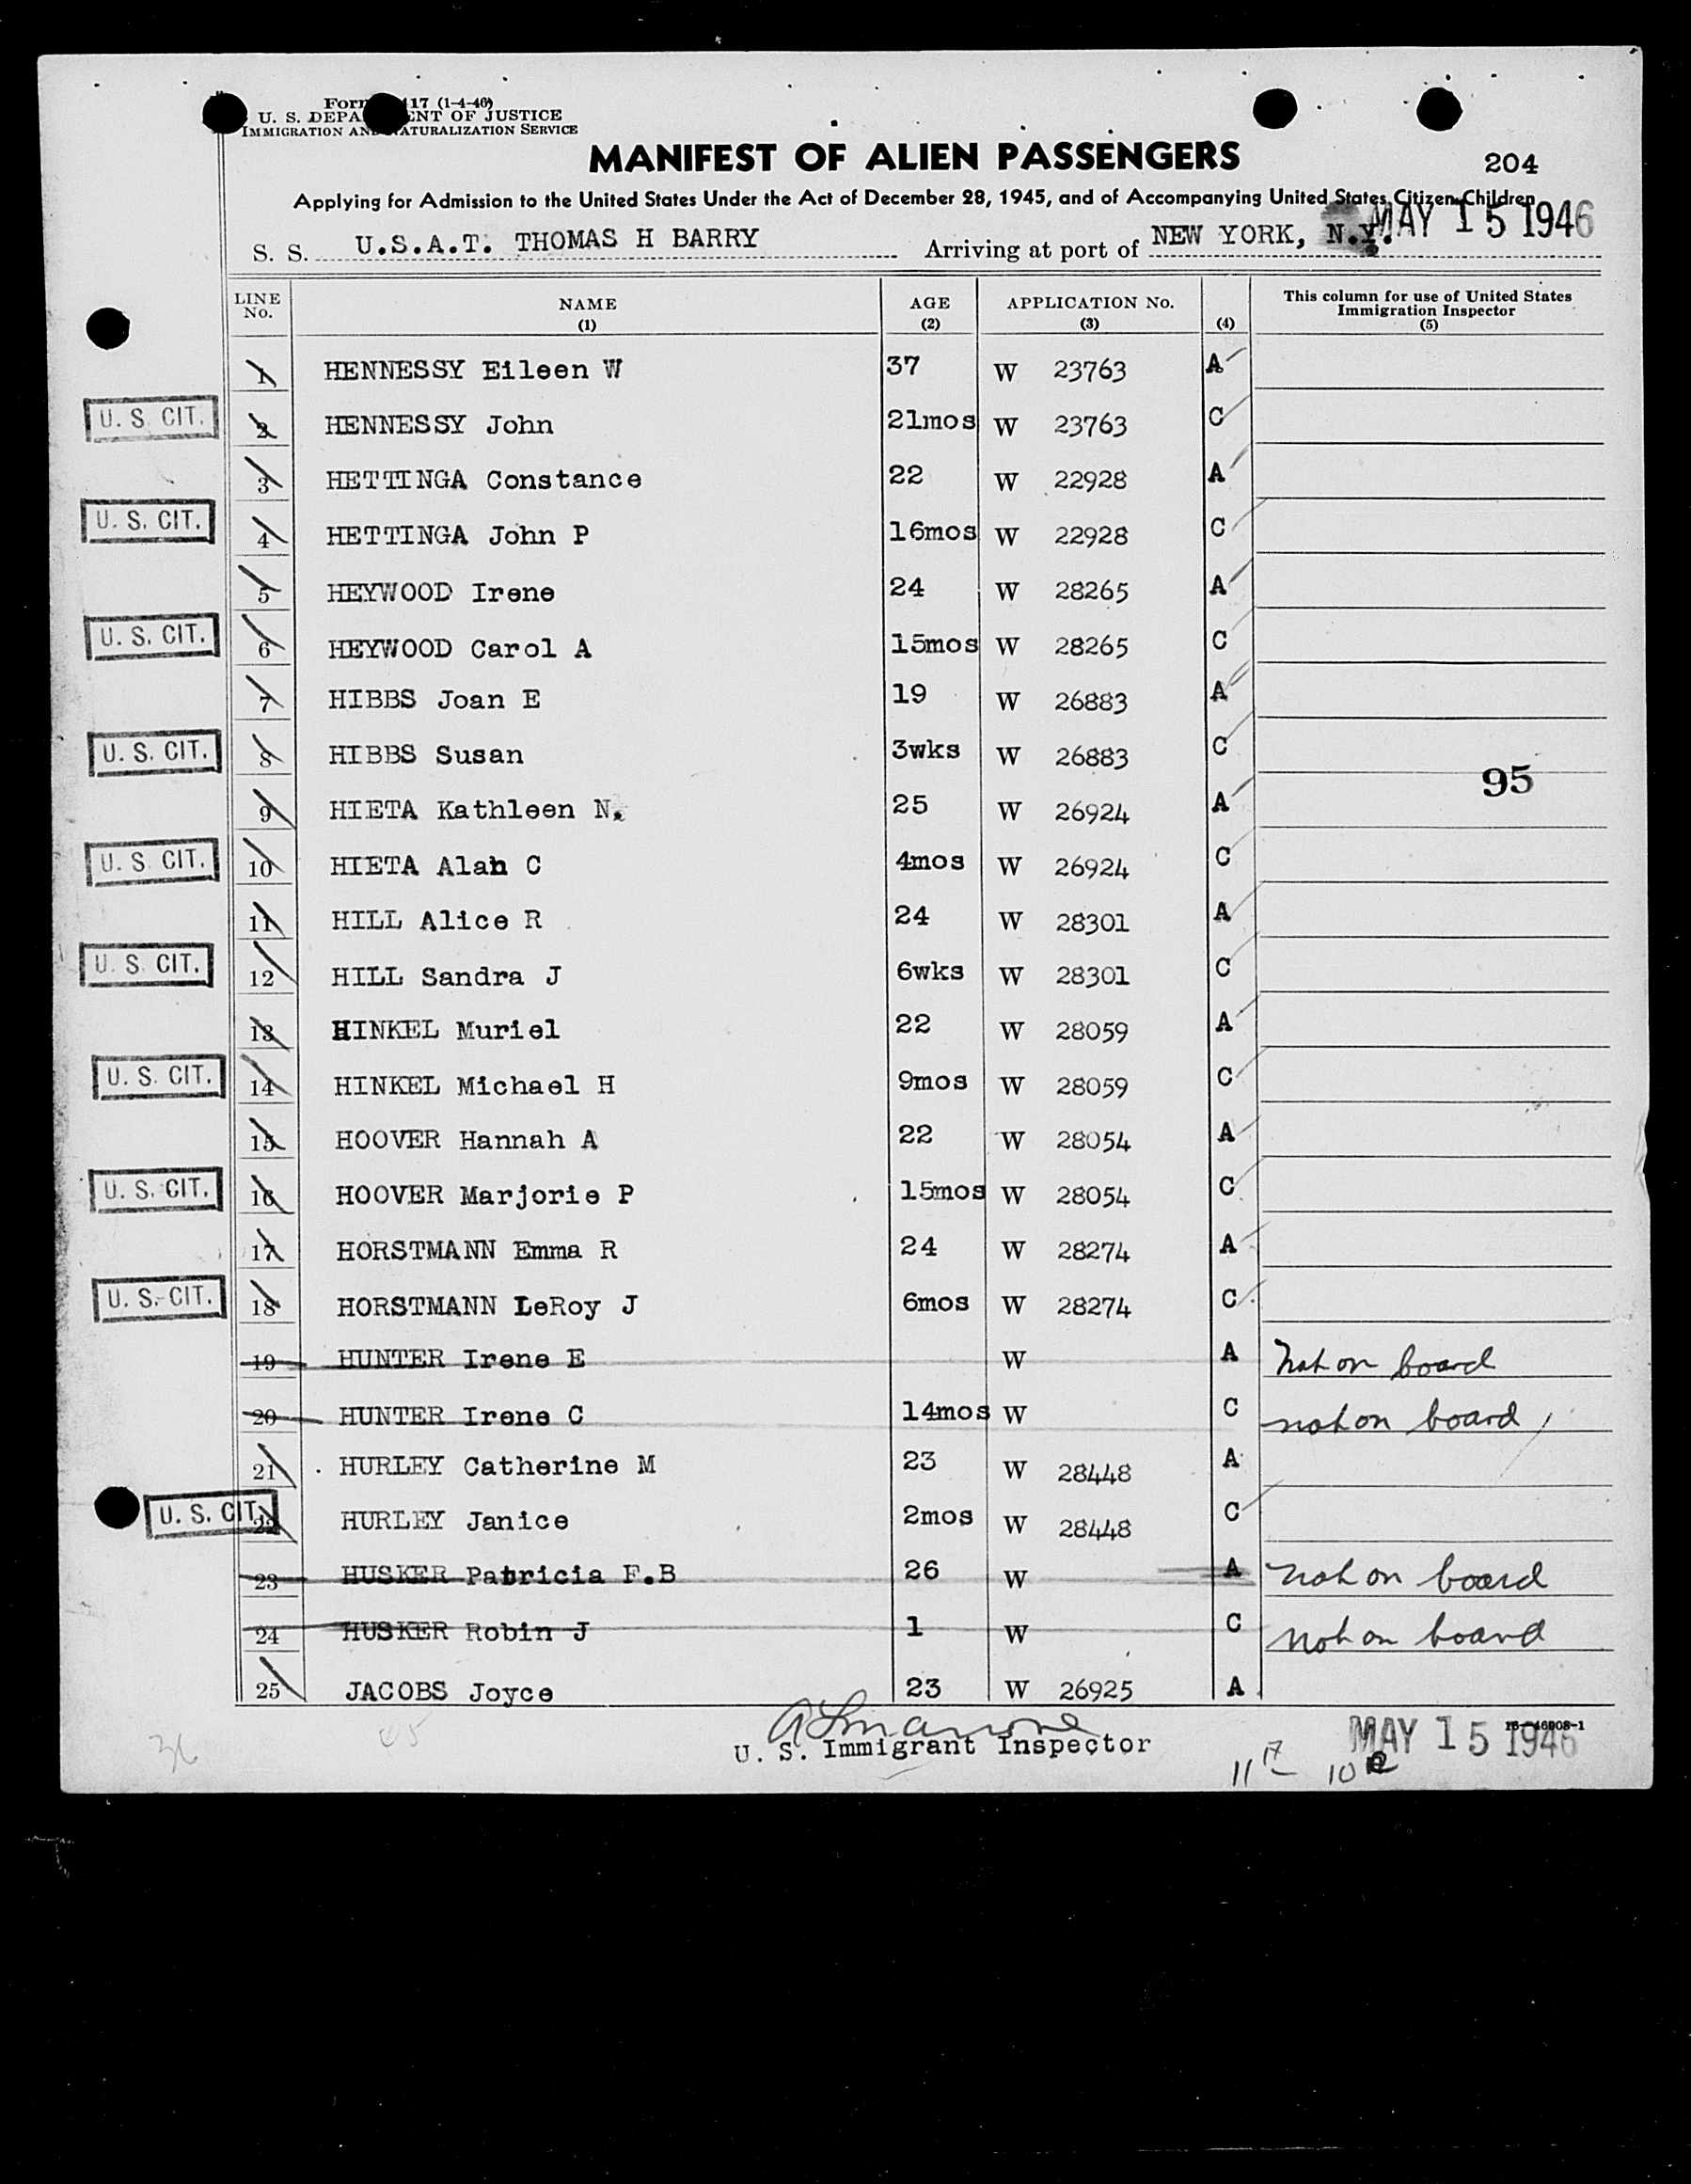 Form 117 (1-4-46)
U. S. DEPARTMENT OF JUSTICE
IMMIGRATION AND NATURALIZATION SERVICE
MANIFEST OF ALIEN PASSENGERS
204
Applying for Admission to the United States Under the Act of December 28, 1945, and of Accompanying United States Citizen Children
MAY 15 1946
S. S. U.S.A.T. THOMAS H BARRY Arriving at port of NEW YORK, N.Y.
LINE No. NAME (1) AGE (2) APPLICATION No. (3) (4) This column for use of United States Immigration Inspector (5)
1 HENNESSY Eileen W 37 W 23763 A
U. S. CIT. 2 HENNESSY John 21mos W 23763 C
3 HETTINGA Constance 22 W 22928 A
U. S. CIT. 4 HETTINGA John P 16mos W 22928 C
5 HEYWOOD Irene 24 W 28265 A
U. S. CIT. 6 HEYWOOD Carol A 15mos W 28265 C
7 HIBBS Joan E 19 W 26883 A
U. S. CIT. 8 HIBBS Susan 3wks W 26883 C
95
9 HIETA Kathleen N. 25 W 26924 A
U. S. CIT. 10 HIETA Alan C 4mos W 26924 C
11 HILL Alice R 24 W 28301 A
U. S. CIT. 12 HILL Sandra J 6wks W 28301 C
13 HINKEL Muriel 22 W 28059 A
U. S. CIT. 14 HINKEL Michael H 9mos W 28059 C
15 HOOVER Hannah A 22 W 28054 A
U. S. CIT. 16 HOOVER Marjorie P 15mos W 28054 C
17 HORSTMANN Emma R 24 W 28274 A
U. S. CIT. 18 HORSTMANN LeRoy J 6mos W 28274 C
19 HUNTER Irene E W A Not on board
20 HUNTER Irene C 14mos W C not on board
21 HURLEY Catherine M 23 W 28448 A
U. S. CIT. 22 HURLEY Janice 2mos W 28448 C
23 HUSKER Patricia F.B 26 W A not on board
24 HUSKER Robin J 1 W C Not on board
25 JACOBS Joyce 23 W 26925 A
U. S. Immigrant Inspector
MAY 15 1946
16-46908-1